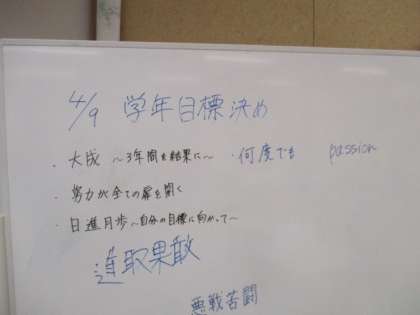 4/9 学年目標決め
・大成 〜3年間を結果に〜 ・何度でも passion
・努力が全ての扉を開く
・日進月歩〜自分の目標に向かって〜
進取果敢
悪戦苦闘